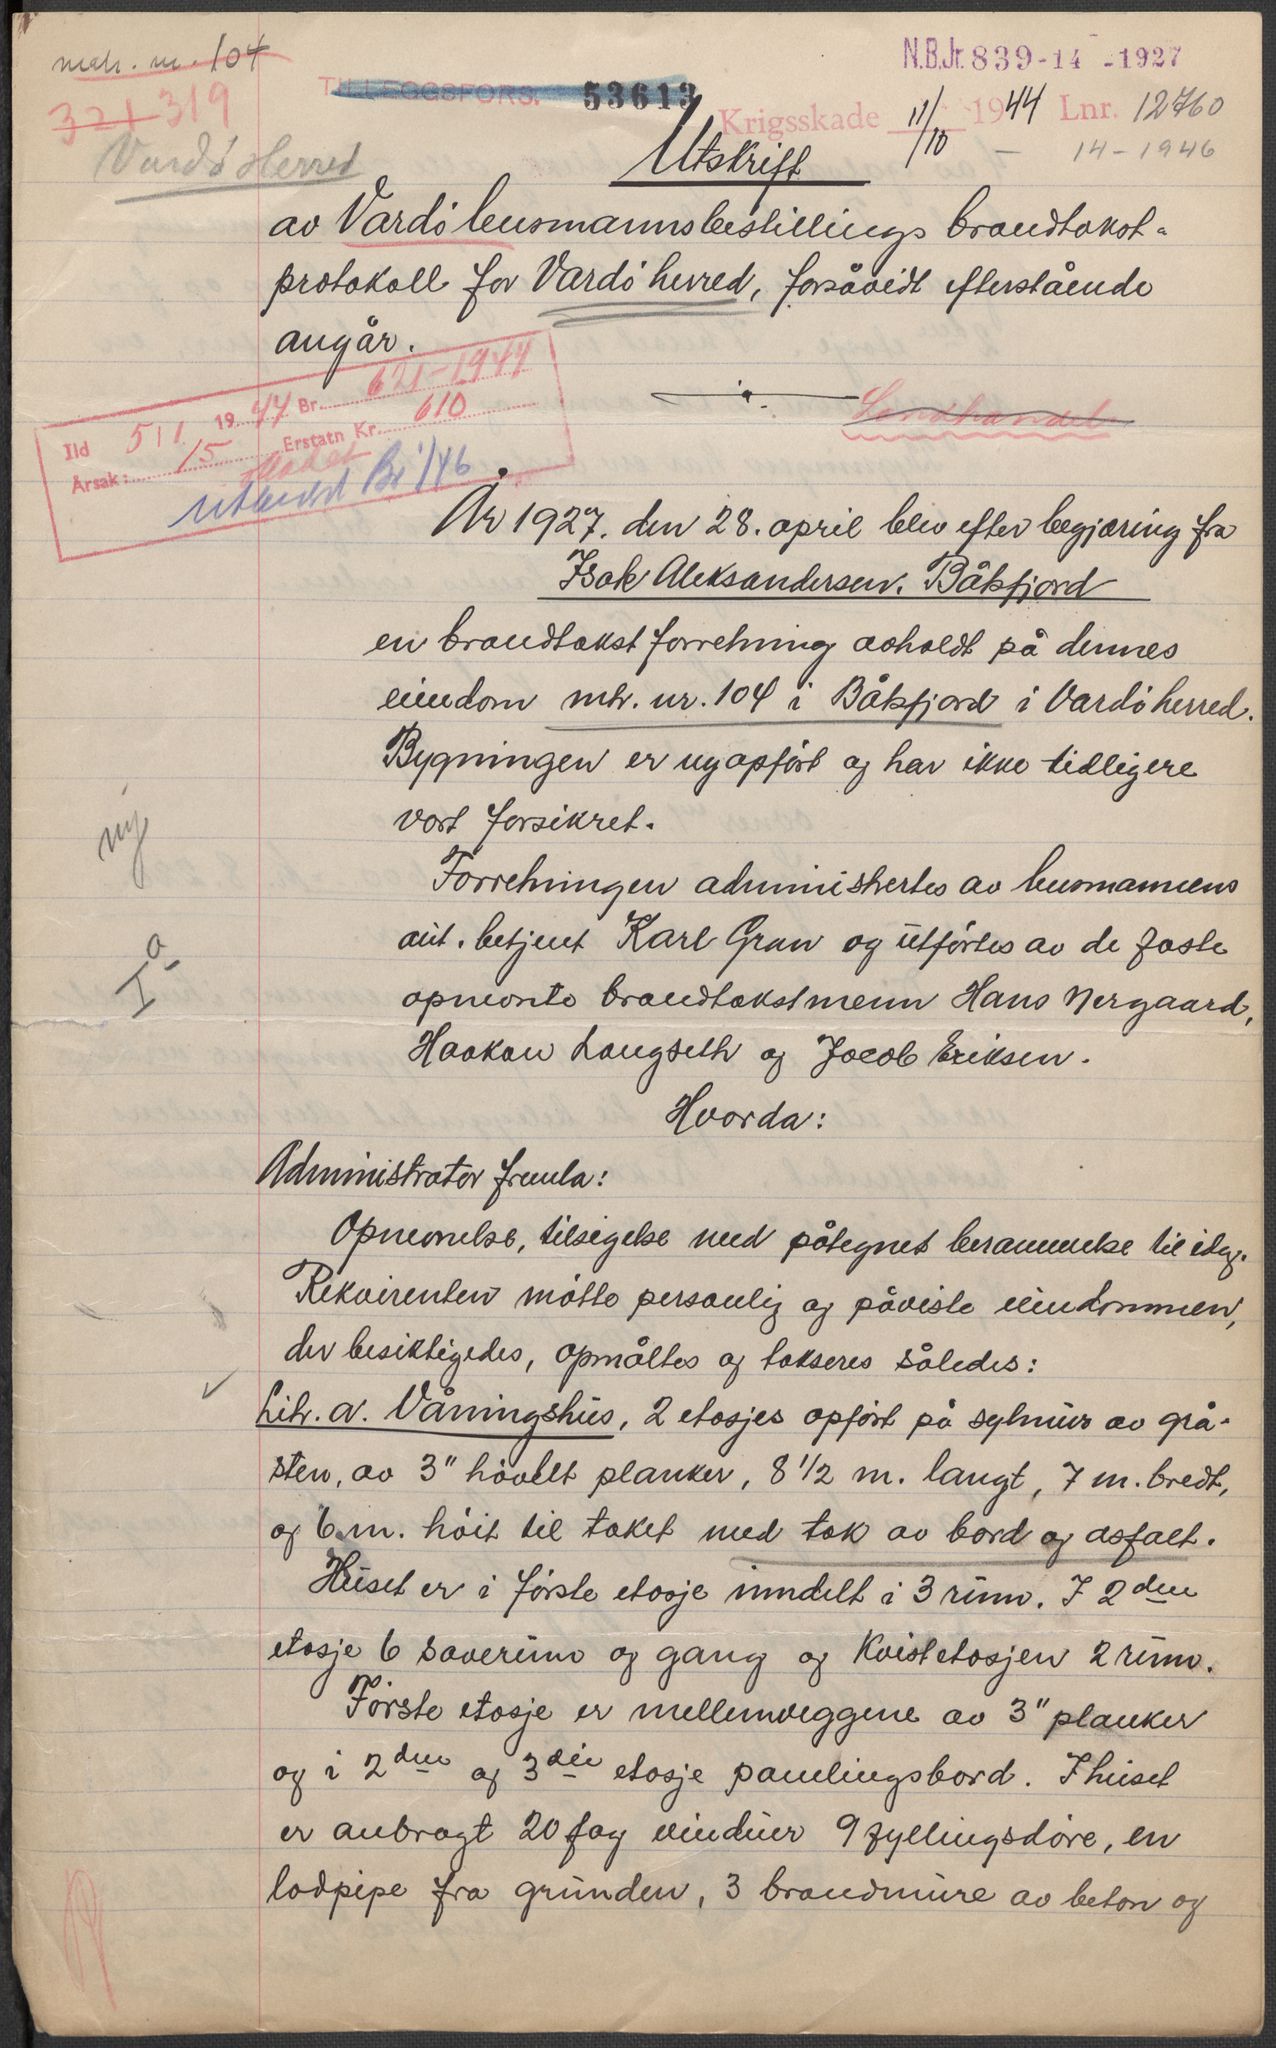 matr. nr. 104
321 319
Vardø Herred
TILLEGGSFORS. 53613
N.B.Jr. 839-14-1927
Krigsskade 11/10 1944 Lnr. 12760
14-1946
Utskrift
av Vardö lensmannsbestillings brandtakst-
protokoll for Vardö herred, forsåvidt efterstående
angår.
Landhandel
Ild 5/11 1944 Br. 621-1944
Årsak: 15 Erstatn Kr. 610
År 1927. den 28. april blev efter begjæring fra
Isak Aleksandersen. Båtsfjord
en brandtakstforretning avholdt på dennes
eiendom mtr. nr. 104 i Båtsfjord i Vardö herred.
Bygningen er nyopfört og har ikke tidligere
vært forsikret.
ny
Forretningen administrertes av lensmannens
aut. betjent Karl Gran og utförtes av de faste
Ia
opnevnte brandtakstmenn Hans Nergaard,
Haakon Langseth og Jacob Eriksen.
Hvorda:
Administrator fremla:
Opnevnelse, tilsigelse med påtegnet berammelse til idag.
Rekvirenten mötte personlig og påviste eiendommen,
der besiktigedes, opmåltes og takseres således:
Litr. a. Våningshus, 2 etasjes opfört på sylmur av grå-
sten, av 3" hövlet planker, 8 1/2 m. langt, 7 m. bredt,
og 6 m. höit til taket med tak av bord og asfalt.
Huset er i förste etasje inndelt i 3 rum. I 2den
etasje 6 soverum og gang og kvistetasjen 2 rum.
Förste etasje er mellemveggene av 3" planker
og i 2den og 3die etasje panelingsbord. I huset
er anbragt 20 fag vinduer 9 fyllingsdöre, en
lodpipe fra grunden, 3 brandmure av beton og